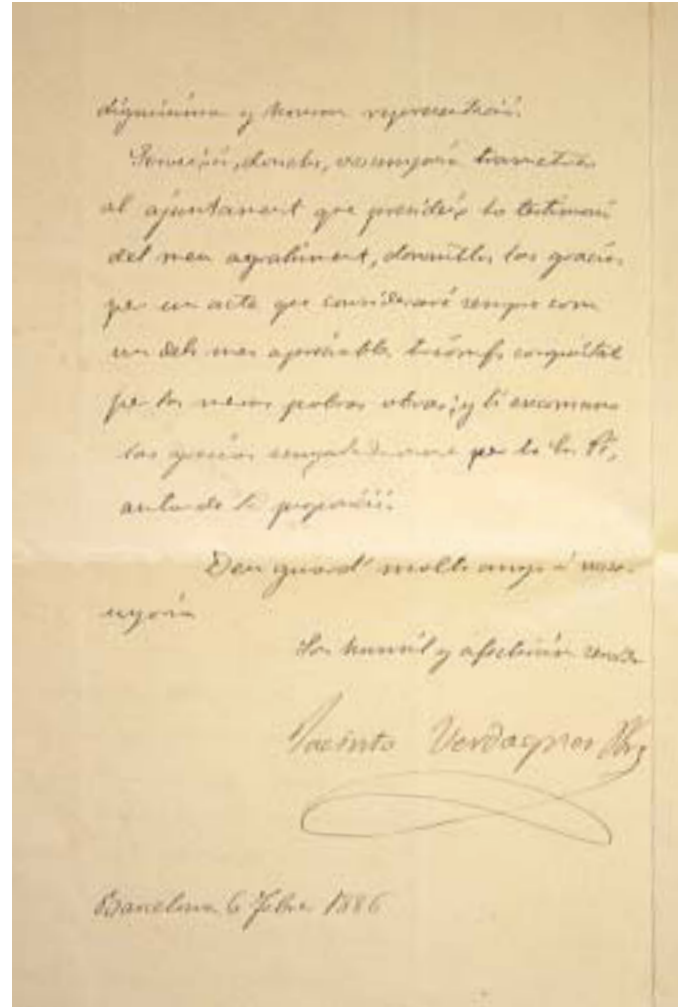 digníssima y honrosa representació.
donchs, vossenyoria trametre
al ajuntament que presideix lo testimoni
del meu agrahiment, donantli las gracias
per un acte que consideraré sempre com
un dels mes apreciables triomfs conquistat
per las mevas pobras obras; y li
las gracias per
autor de la proposició.
Deu guard' molts anys á vosse-
nyoria
Son humil y afectíssim servidor
Jacinto Verdaguer Pbre
Barcelona 6 Febrer 1886